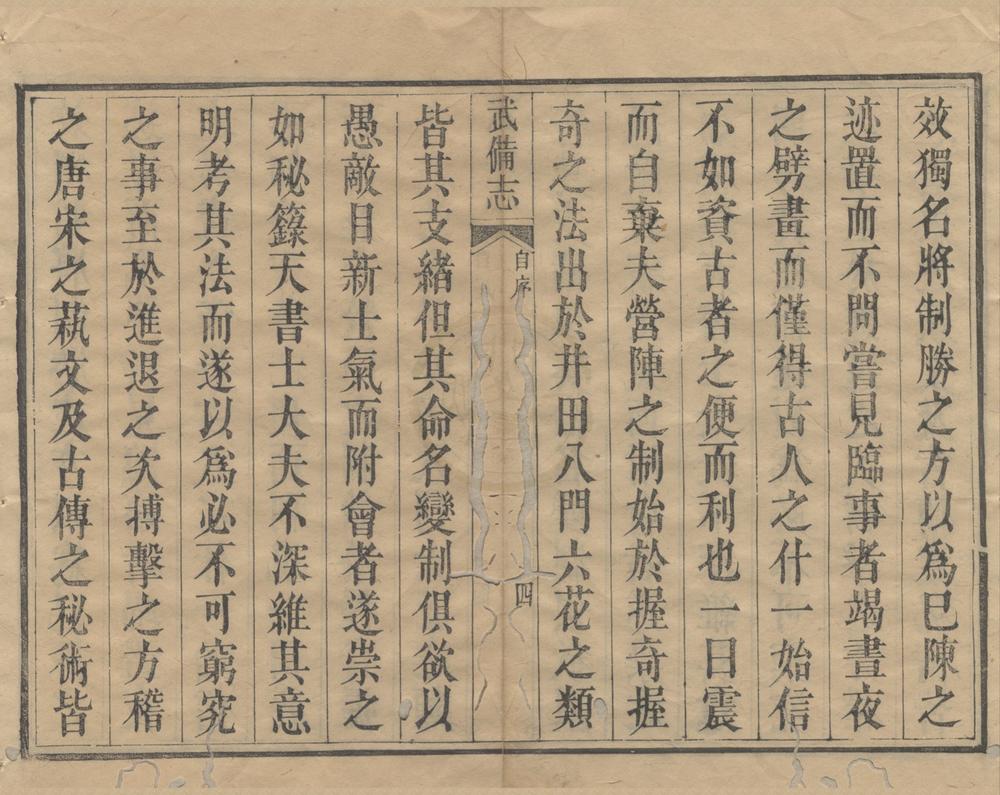 效獨名將制勝之方以爲已陳之
迹置而不問嘗見臨事者竭晝夜
之劈畫而僅得古人之什一始信
不如資古者之便而利也一曰震
而自棄夫營陣之制始於握奇握
奇之法出於井田八門六花之類
武備志
自序
四
皆其支緒但其命名變制俱欲以
愚敵目新士氣而附會者遂崇之
如秘籙天書士大夫不深維其意
明考其法而遂以爲必不可窮究
之事至於進退之次搏擊之方稽
之唐宋之蓺文及古傳之秘術皆